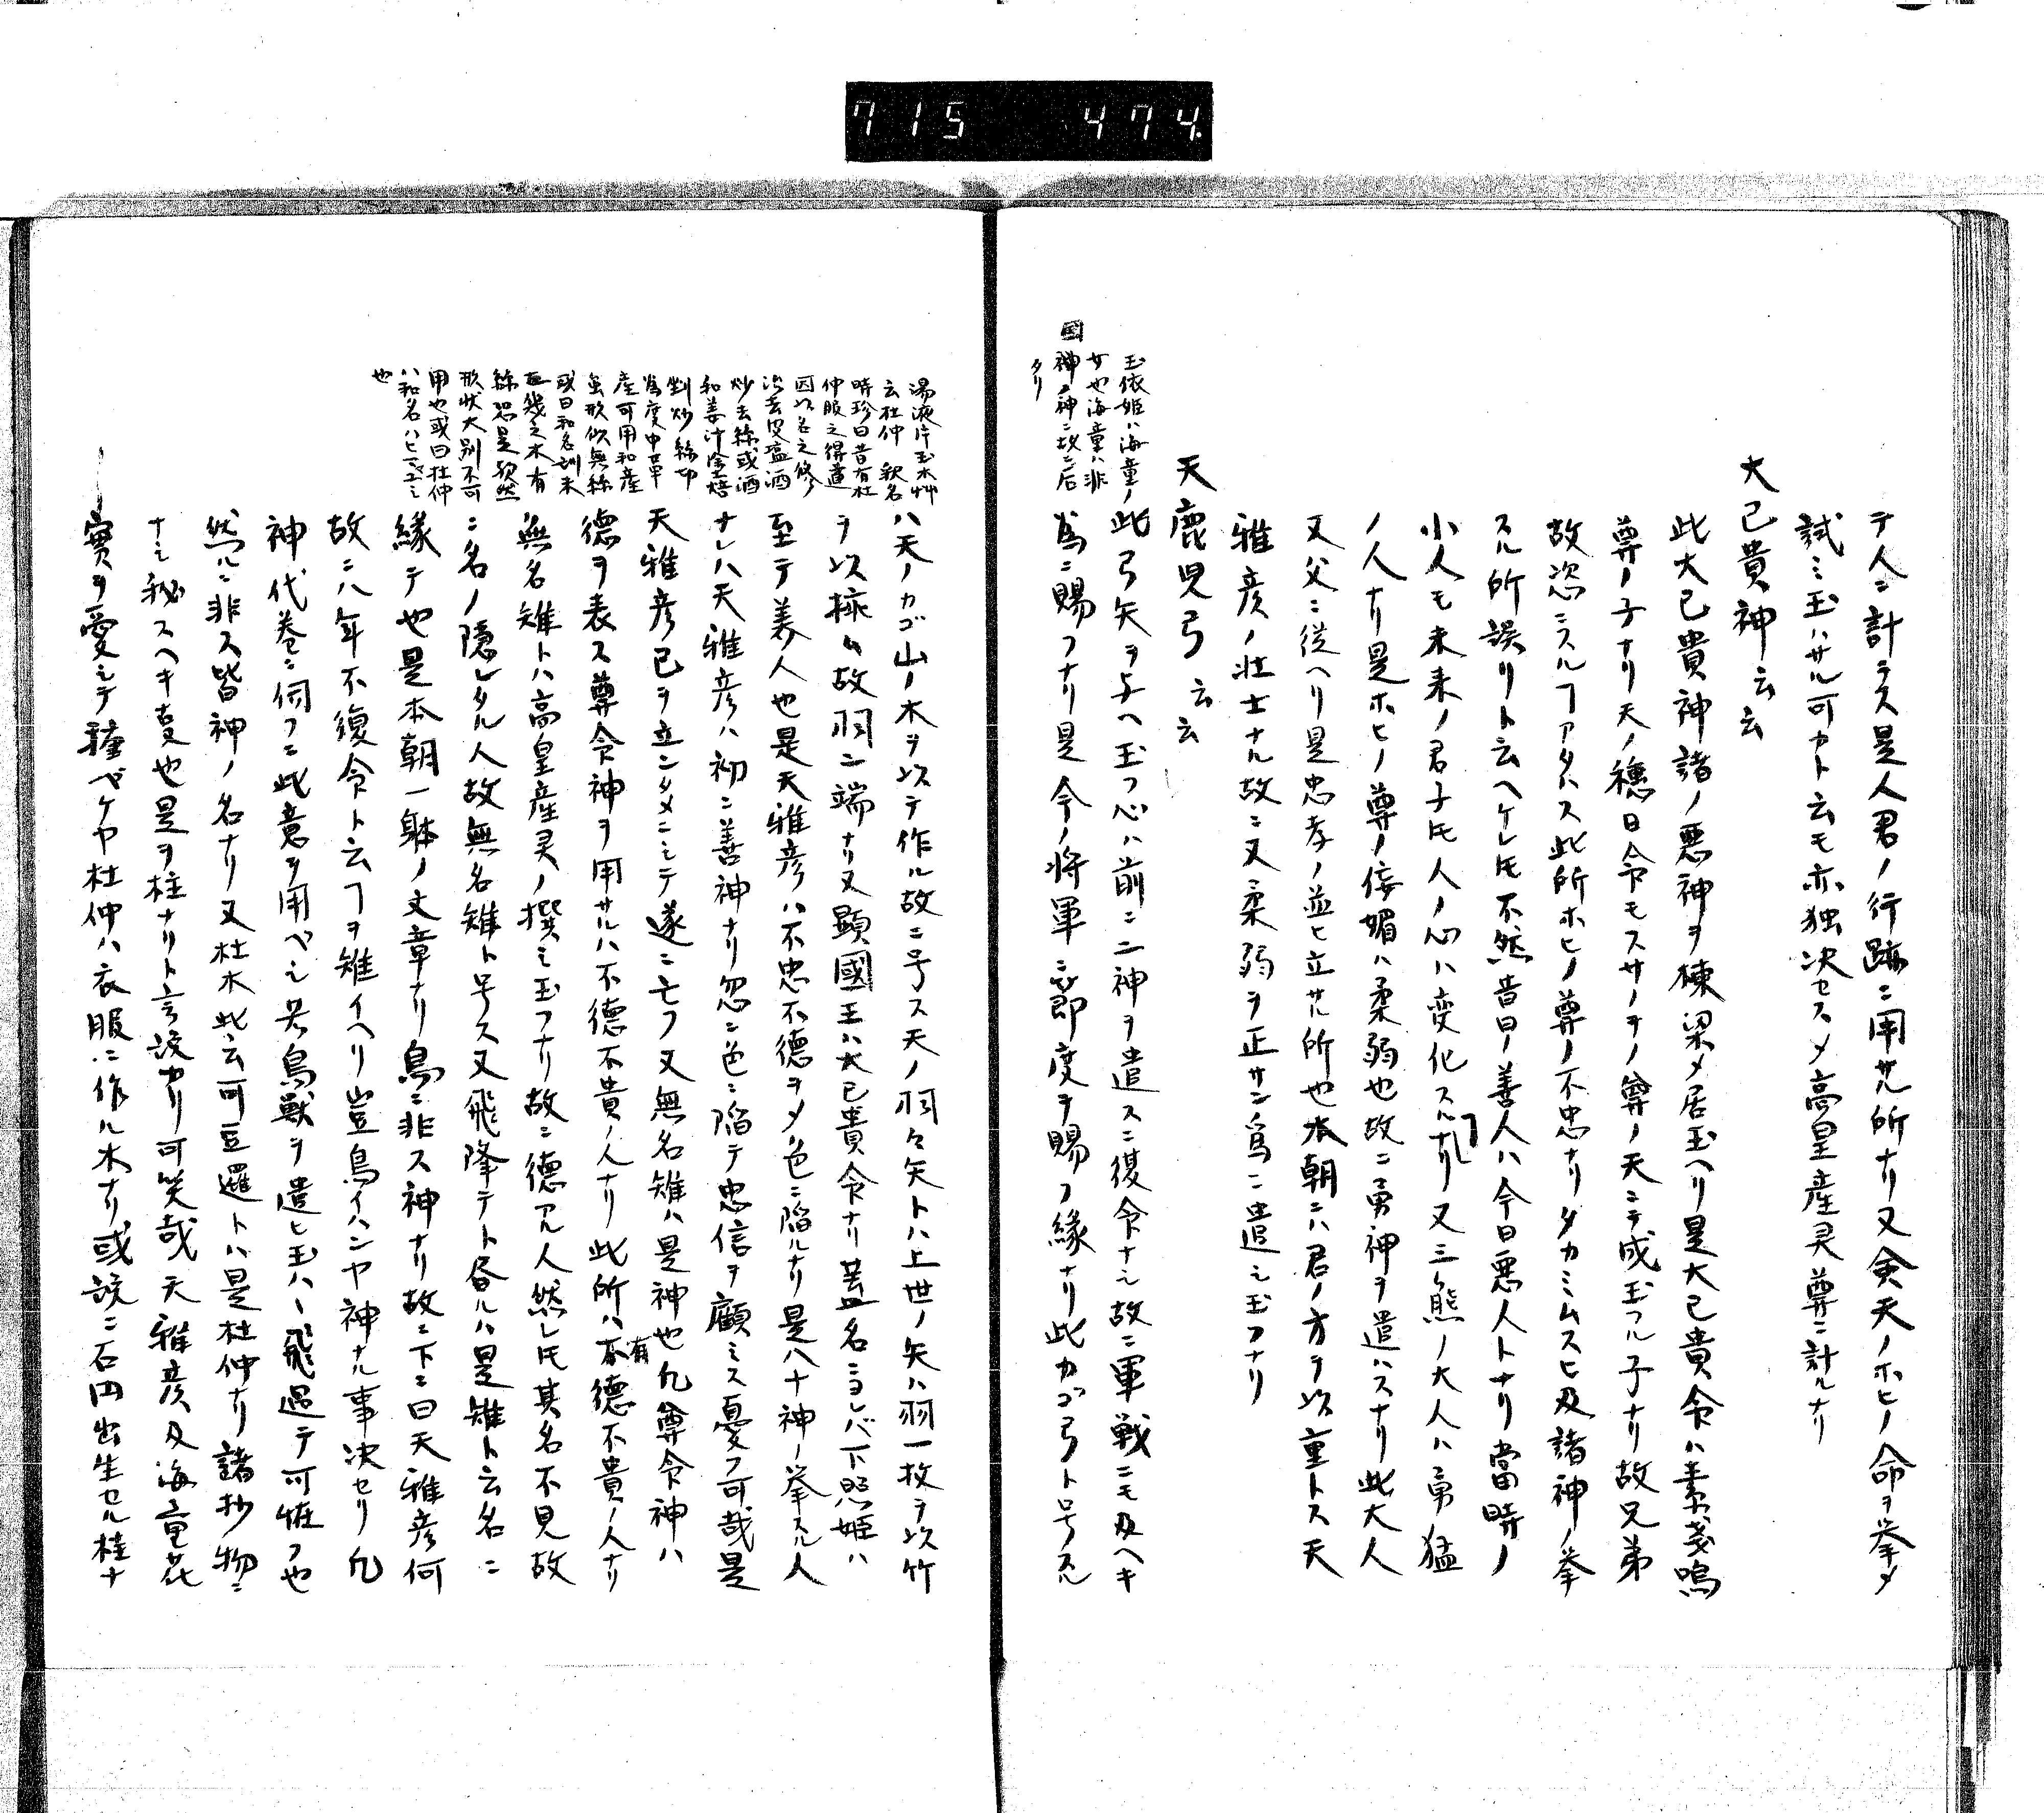 715 474.
テ人ニ計ラス是人君ノ行跡ニ用サル所ナリ又僉天ノホヒノ命ヲ挙タ
試ミ玉ハサル可ヤト云モ亦独決セスメ高皇産灵尊ニ計ルナリ
大己貴神云云
此大己貴神諸ノ悪神ヲ棟梁メ居玉ヘリ是大己貴命ハ素戔嗚
尊ノ子ナリ天ノ穂日命モスサノヲノ尊ノ天ニテ成玉フル子ナリ故兄弟
故恣ニスルヿアタハス此所ホヒノ尊ノ不忠ナリタカミムスヒ及諸神ノ挙
スル所誤リト云ヘケレ𪜈不然昔日ノ善人ハ今日悪人トナリ當時ノ
小人モ未来ノ君子𪜈人ノ心ハ変化スルヿナリ又三熊ノ大人ハ勇猛
ノ人ナリ是ホヒノ尊ノ侫媚ハ柔弱也故ニ勇神ヲ遣ハスナリ此大人
又父ニ従ヘリ是忠孝ノ並ヒ立サル所也本朝ニハ君ノ方ヲ以重トス天
雅彦ノ壮士ナル故ニ又柔弱ヲ正サン為ニ遣シ玉フナリ
天鹿児弓云云
此弓矢ヲ与ヘ玉フ心ハ前ニ二神ヲ遣スニ復命ナシ故ニ軍戦ニモ及ヘキ
為ニ賜フナリ是今ノ将軍ニ節度ヲ賜フ縁ナリ此カゴ弓ト号スル
玉依姫ハ海童ノ
女也海童ハ非
国神ノ神ニ故ニ后
タリ
ハ天ノカゴ山ノ木ヲ以テ作ル故ニ号ス天ノ羽々矢トハ上世ノ矢ハ羽一枚ヲ以竹
ヲ以挾ム故羽二端ナリ又顕國玉ハ大己貴命ナリ蓋名ニヨレバ下照姫ハ
至テ美人也是天雅彦ハ不忠不徳ヲメ色ニ陷ルナリ是八十神ノ挙スル人
ナレハ天雅彦ハ初ニ善神ナリ忽ニ色ニ陷テ忠信ヲ顧ミス憂フ可哉是
天雅彦己ヲ立ンタメニシテ遂ニ亡フ又無名雉ハ是神也凡尊命神ハ
徳ヲ表ス尊命神ヲ用サルハ不徳不貴ノ人ナリ此所ハ有徳不貴ノ人ナリ
無名雉トハ高皇産灵ノ撰ミ玉フナリ故ニ徳アル人然レ𪜈其名不見故
ニ名ノ隠レタル人故無名雉ト号ス又飛降テト啓ルハ是雉ト云名ニ
緣テ也是本朝一躰ノ文章ナリ鳥ニ非ス神ナリ故ニ下ニ曰天雅彦何
故ニ八年不復命ト云ヿヲ雉イヘリ豈鳥イハンヤ神ナル事決セリ凡
神代巻ニ伺フニ此意ヲ用ベシ若鳥獣ヲ遣ヒ玉ハヽ飛過テ可恠フ也
然ルニ非ス皆神ノ名ナリ又杜木此云可豆邏トハ是杜仲ナリ諸抄物ニ
ナシ秘スヘキ叓也是ヲ桂ナリト言說アリ可笑哉天雅彦及海童花
實ヲ愛シテ種ベケヤ杜仲ハ衣服ニ作ル木ナリ或說ニ石円出生セル桂ナ
湯液片玉本艸
云杜仲 釈名
時珍曰昔有杜
仲服之得道
因以名之修
治去皮塩酒
炒去絲或酒
和姜汁塗焙
剉炒絲切
為度中華
産可用和産
虽形似無絲
或曰和名訓未
幾之木有
絲恐是歟然
形状大別不可
用也或曰杜仲
ハ和名ハヒマユミ
也